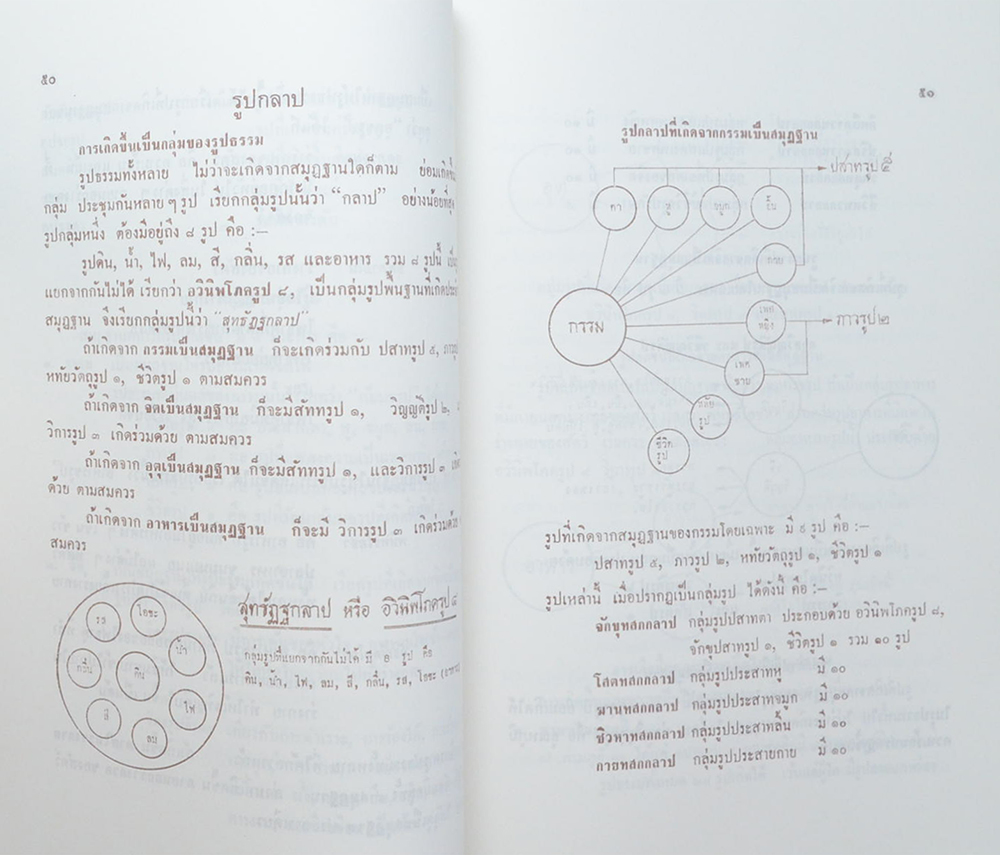 ๕๐
รูปกลาป
การเกิดขึ้นเป็นกลุ่มของรูปธรรม
รูปธรรมทั้งหลาย ไม่ว่าจะเกิดจากสมุฏฐานใดก็ตาม ย่อมเกิด
กลุ่ม ประชุมกันหลาย ๆ รูป เรียกกลุ่มรูปนั้นว่า “กลาป” อย่างน้อยที่สุด
รูปกลุ่มหนึ่ง ต้องมีอยู่ถึง ๘ รูป คือ :–
รูปดิน, น้ำ, ไฟ, ลม, สี, กลิ่น, รส และอาหาร รวม ๘ รูปนี้
แยกจากกันไม่ได้ เรียกว่า อวินิพโภครูป ๘, เป็นกลุ่มรูปพื้นฐานที่เกิด
สมุฏฐาน จึงเรียกกลุ่มรูปนี้ว่า “สุทธัฏฐกลาป”
ถ้าเกิดจาก กรรมเป็นสมุฏฐาน ก็จะเกิดร่วมกับ ปสาทรูป ๕,
หทัยวัตถุรูป ๑, ชีวิตรูป ๑ ตามสมควร
ถ้าเกิดจาก จิตเป็นสมุฏฐาน ก็จะมีสัททรูป ๑, วิญญัติรูป ๒,
วิการรูป ๓ เกิดร่วมด้วย ตามสมควร
ถ้าเกิดจาก อุตุเป็นสมุฏฐาน ก็จะมีสัททรูป ๑, และวิการรูป ๓
ด้วย ตามสมควร
ถ้าเกิดจาก อาหารเป็นสมุฏฐาน ก็จะมี วิการรูป ๓ เกิดร่วมด้วย
สมควร
สุทธัฏฐกลาป หรือ อวินิพโภครูป ๘
กลุ่มรูปที่แยกจากกันไม่ได้ มี ๘ รูป คือ
ดิน, น้ำ, ไฟ, ลม, สี, กลิ่น, รส, โอชะ
รส
โอชะ
กลิ่น
ดิน
น้ำ
สี
ไฟ
ลม
๕๑
รูปกลาปที่เกิดจากกรรมเป็นสมุฏฐาน
ปสาทรูป ๕
ตา
หู
จมูก
ลิ้น
กาย
กรรม
เพศ
หญิง
ภาวรูป ๒
เพศ
ชาย
หทัย
รูป
ชีวิต
รูป
รูปที่เกิดจากสมุฏฐานของกรรมโดยเฉพาะ มี ๙ รูป คือ :–
ปสาทรูป ๕, ภาวรูป ๒, หทัยวัตถุรูป ๑, ชีวิตรูป ๑
รูปเหล่านี้ เมื่อปรากฏเป็นกลุ่มรูป ได้ดังนี้ คือ :–
จักขุทสกกลาป กลุ่มรูปปสาทตา ประกอบด้วย อวินิพโภครูป ๘,
จักขุปสาทรูป ๑, ชีวิตรูป ๑ รวม ๑๐ รูป
โสตทสกกลาป กลุ่มรูปประสาทหู มี ๑๐
ฆานทสกกลาป กลุ่มรูปประสาทจมูก มี ๑๐
ชิวหาทสกกลาป กลุ่มรูปประสาทลิ้น มี ๑๐
กายทสกกลาป กลุ่มรูปประสายกาย มี ๑๐